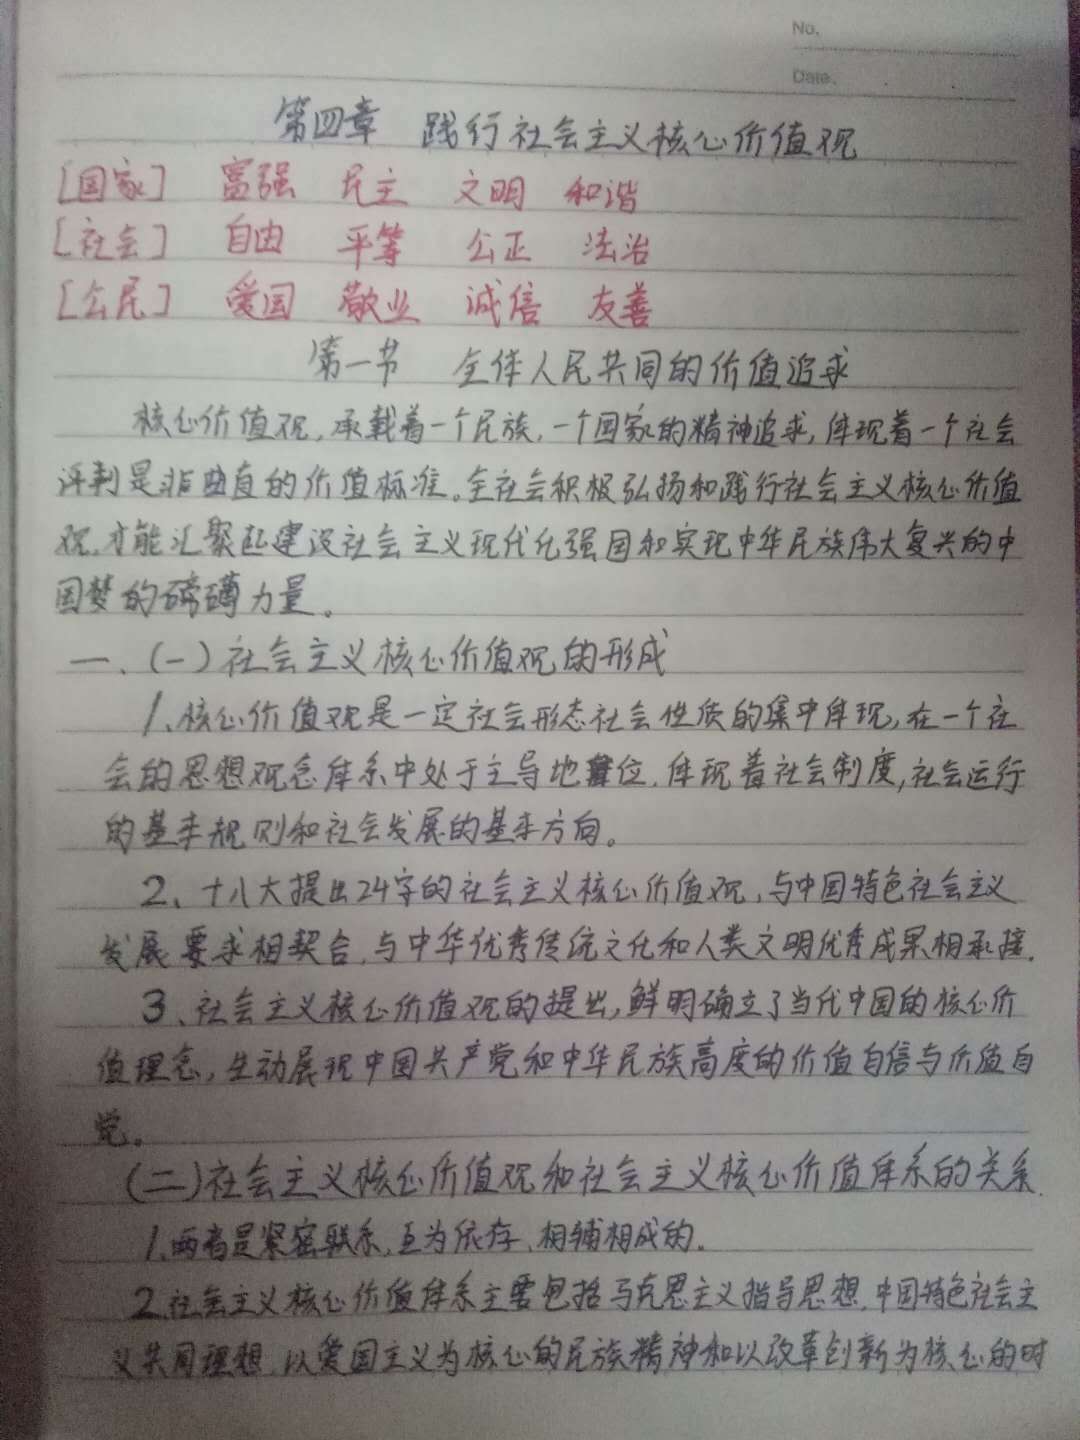 No.
Date.
第四章 践行社会主义核心价值观
[国家] 富强 民主 文明 和谐
[社会] 自由 平等 公正 法治
[公民] 爱国 敬业 诚信 友善
第一节 全体人民共同的价值追求
核心价值观,承载着一个民族,一个国家的精神追求,体现着一个社会
评判是非曲直的价值标准。全社会积极弘扬和践行社会主义核心价值
观,才能汇聚起建设社会主义现代化强国和实现中华民族伟大复兴的中
国梦的磅礴力量。
一、(一)社会主义核心价值观的形成
1、核心价值观是一定社会形态社会性质的集中体现,在一个社
会的思想观念体系中处于主导地位,体现着社会制度,社会运行
的基本规则和社会发展的基本方向。
2、十八大提出24字的社会主义核心价值观,与中国特色社会主义
发展要求相契合,与中华优秀传统文化和人类文明优秀成果相承接.
3、社会主义核心价值观的提出,鲜明确立了当代中国的核心价
值理念,生动展现中国共产党和中华民族高度的价值自信与价值自
觉。
(二)社会主义核心价值观和社会主义核心价值体系的关系.
1、两者是紧密联系,互为依存、相辅相成的。
2、社会主义核心价值体系主要包括马克思主义指导思想,中国特色社会主
义共同理想,以爱国主义为核心的民族精神和以改革创新为核心的时